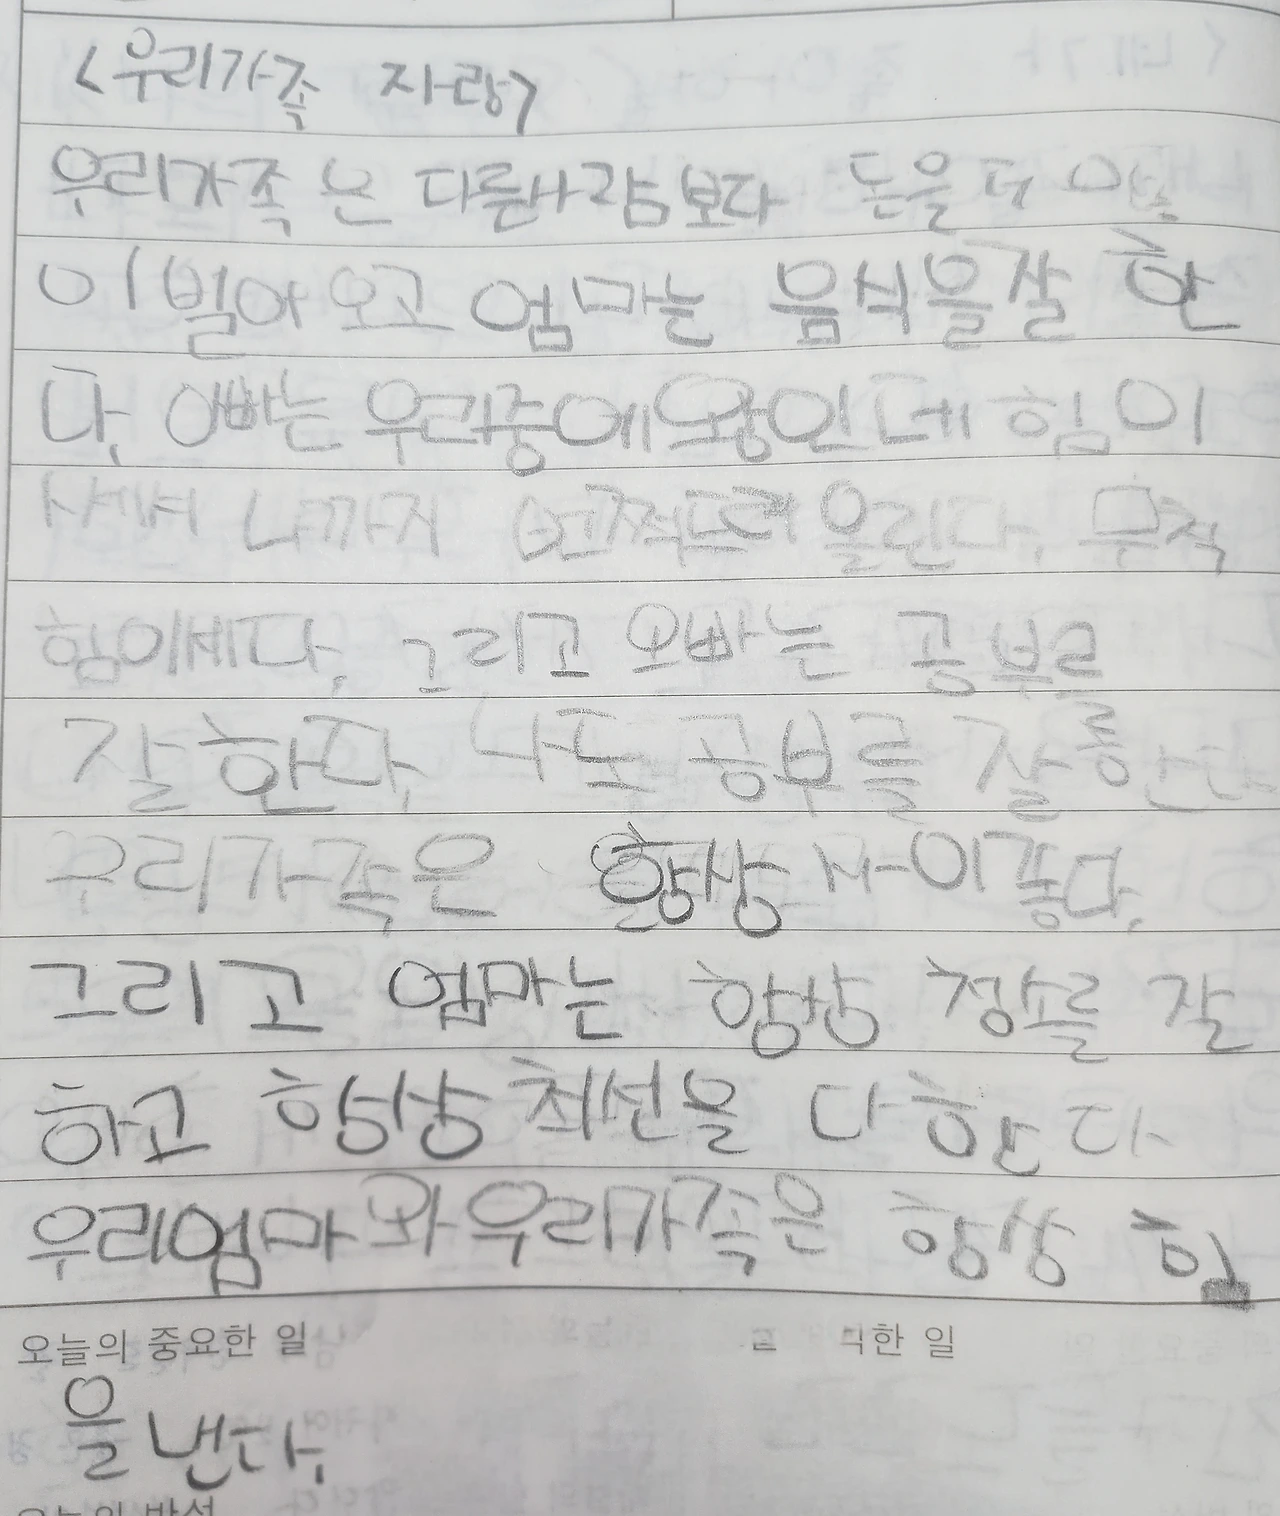 <우리가족 자랑>
우리가족은 다른사람보다 돈을 더 많
이 벌어오고 엄마는 음식을잘 한
다. 아빠는 우리중에 왕인데 힘이
나까지 번쩍 올린다. 무척
힘이세다. 그리고 오빠는 공부를
잘한다. 나도 공부를 잘
우리가족은 항상 사이좋다.
그리고 엄마는 항상 청소를 잘
하고 항상 최선을 다한다
우리엄마와 우리가족은 항상 힘
오늘의 중요한 일 한 일
을 낸다.